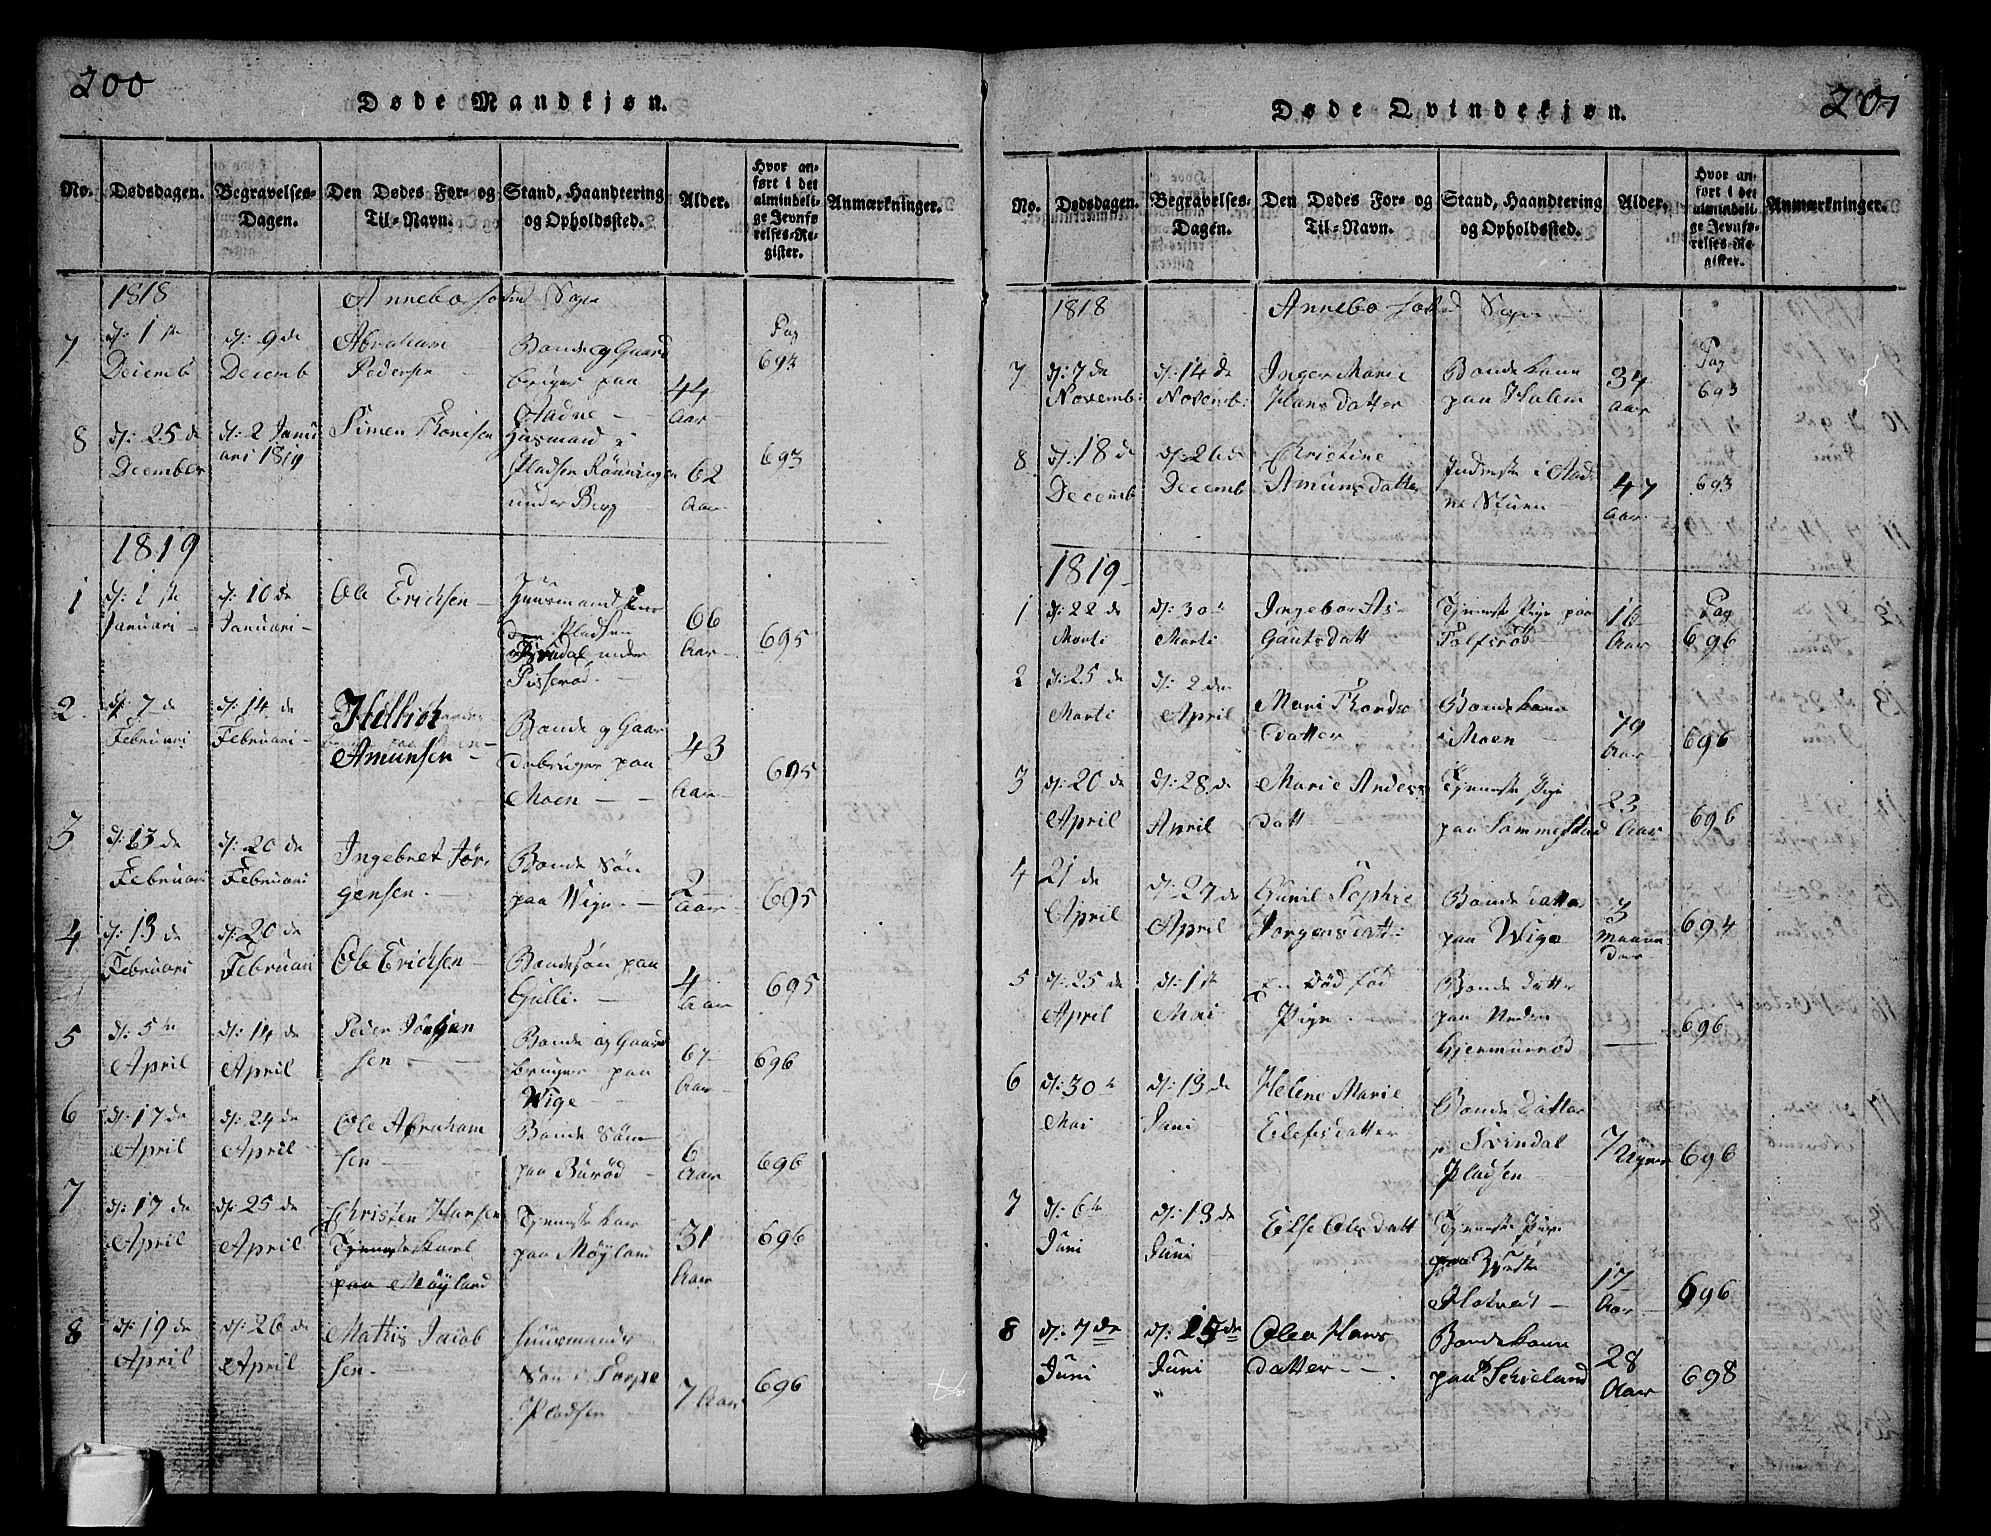 200
Døde Mandkjøn.
No. Dødsdagen. Begravelses-Dagen. Den Dødes For- og Til-Navn. Stand, Haandtering og Opholdssted. Alder. Hvor anført i det almindelige Jevnførelses-Register. Anmærkninger.
1818 Annebo Sogn
7 d: 1ste Decemb d: 9de Decemb Abraham Pedersen Bonde og Gaardbruger paa Aadne 44 Aar Pag 693
8 d: 25de December d: 2 Januari 1819 Simen Huusmand Pladsen Rønningen under Berg 62 Aar 693
1819
1 d: 1ste Januari d: 10de Januari Ole Ericksen Huusmand Pladsen under 66 Aar 695
2 d: 7de Februari d: 14de Februari Amunsen Bonde og Gaardebruger paa Moen 43 Aar 695
3 d: 13de Februari d: 20de Februari Ingebret Jørgensen Bonde Søn paa Wige 2 Aar 695
4 d: 13de Februari d: 20de Februari Ole Ericksen Bondesøn paa Gulli 4 Aar 695
5 d: 5te April d: 14de April Peder Bonde og Gaardbruger paa Wige 67 Aar 696
6 d: 17de April d: 24de April Ole Abrahamsen Bonde Søn paa Burød 6 Aar 696
7 d: 17de April d: 25de April Christen Hansen Tjenestekarl paa Møyland Tjenestekar paa Møyland 31 Aar 696
8 d: 19de April d: 26de April Mathis Jacobsen Huusmands Søn i Pladsen 7 Aar 696
201
Døde Qvindekjøn.
No. Dødsdagen. Begravelses-Dagen. Den Dødes For- og Til-Navn. Stand, Haandtering og Opholdssted. Alder. Hvor anført i det almindelige Jevnførelses-Register. Anmærkninger.
1818 Annebo Sogn
7 d: 7de Novemb: d: 14de Novemb: Inger Marie Hansdatter Bondekone paa Holem 34 Aar Pag 693
8 d: 18de Decemb d: 26de Decemb Christine Amunsdatter i 47 Aar 693
1819
1 d: 22de Marti d: 30te Marti Ingebor Asgautsdatt Tjeneste Pige paa Tolfsrød 16 Aar Pag 696
2 d: 25de Marti d: 2den April Mari Thordsdatter Bondekone i Moen 79 Aar 696
3 d: 20de April d: 28de April Marie Andersdatt Tjeneste Pige paa Sommerstad 23 Aar 696
4 21de April d: 29de April Gunil Sophie Jørgensdatt: Bonde datter paa Wige 3 Maaneder 694
5 d: 25de April d: 1ste Mai En Død fød Pige Bonde datter paa Nedre Gjermunrød 696
6 d: 30te Mai d: 13de Juni Helene Marie Elefsdatter Bonde datter Svindal Pladsen 7 Uger 696
7 d: 6te Juni d: 13de Juni Else Olsdatt Tjeneste Pige paa Holved 17 Aar 696
8 d: 7de Juni d: 15de Juni Olea Hansdatter Bonde kone paa Schieland 28 Aar 698